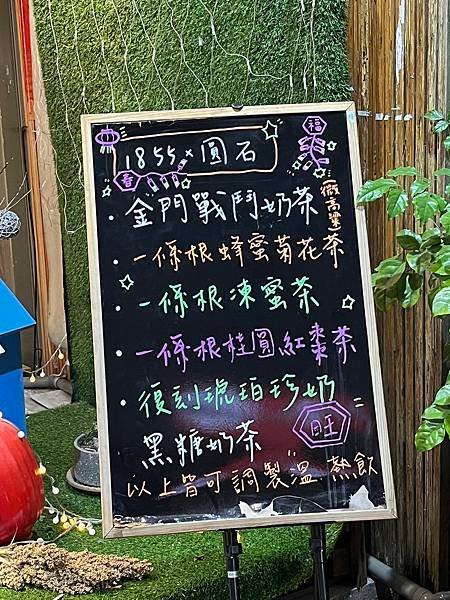 福
1855×圓石
春
・金門戰鬥奶茶(微高粱)
・一條根蜂蜜菊花茶
・一條根凍蜜茶
・一條根桂圓紅棗茶
・復刻琥珀珍奶
黑糖奶茶
旺
以上皆可調製溫、熱飲